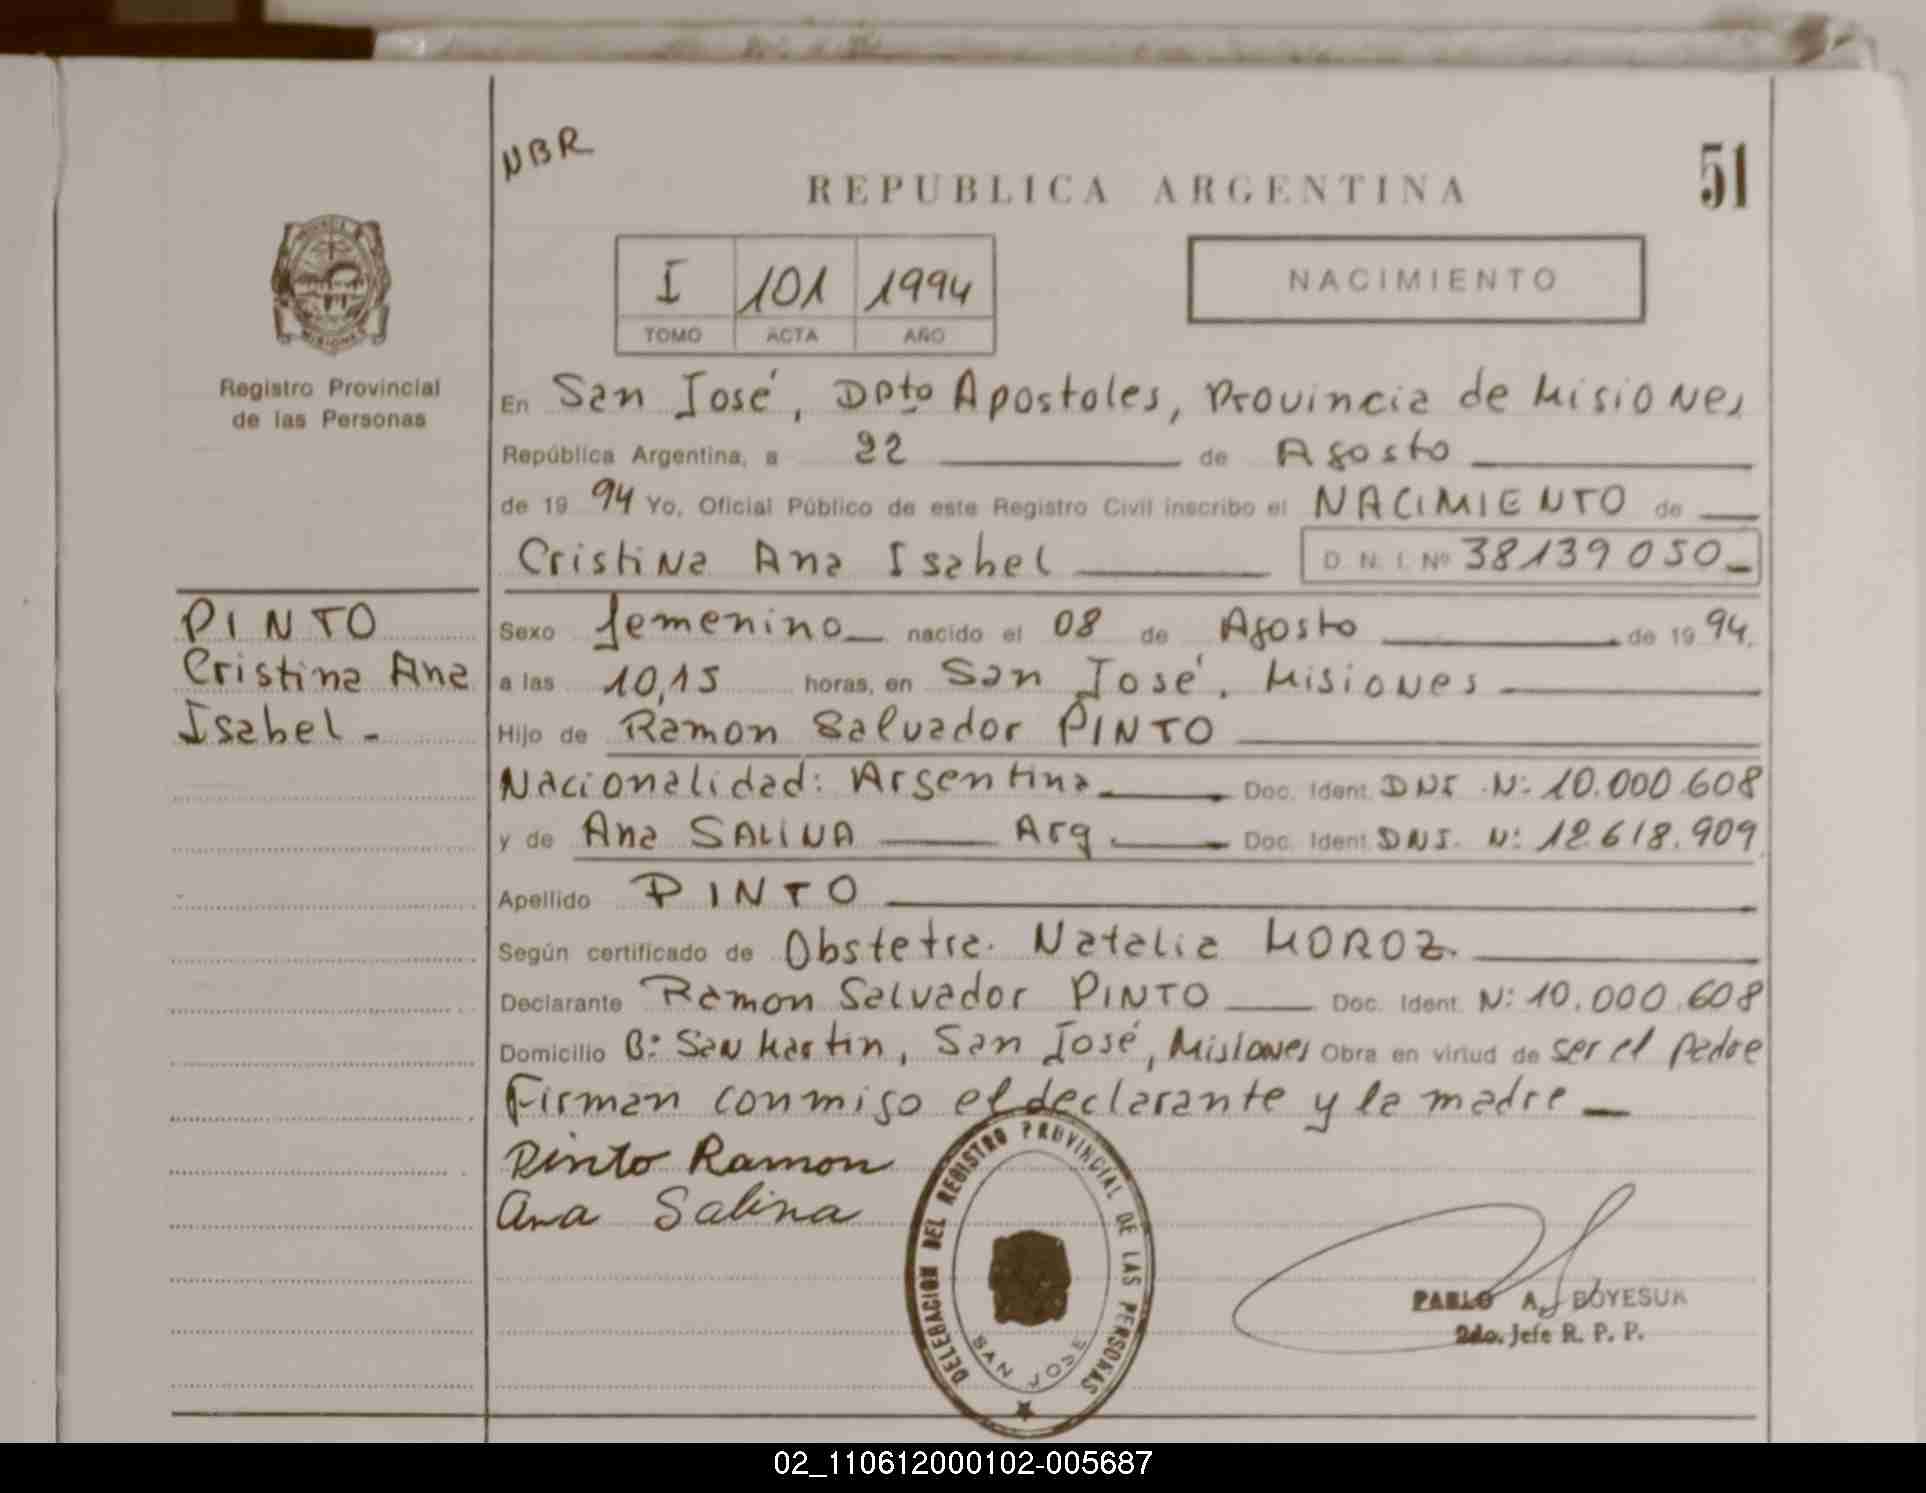 NBR
REPUBLICA ARGENTINA
51
I 101 1994
TOMO ACTA AÑO
NACIMIENTO
Registro Provincial
de las Personas
En San José, Dpto Apostoles, Provincia de Misiones
República Argentina, a 22 de Agosto
de 1994 Yo, Oficial Público de este Registro Civil inscribo el NACIMIENTO de
Cristina Ana Isabel D. N. I. Nº 38139050
PINTO
Cristina Ana
Isabel.-
Sexo femenino nacido el 08 de Agosto de 1994.
a las 10,15 horas, en San José, Misiones
Hijo de Ramon Salvador PINTO
Nacionalidad: Argentina Doc. Ident. DNI. N: 10.000.608
y de Ana SALINA Arg Doc. Ident. DNI. N: 12.618.909
Apellido PINTO
Según certificado de Obstetra. Natalia MOROZ.
Declarante Ramon Salvador PINTO Doc. Ident. N: 10.000.608
Domicilio B: San Martin, San José, Misiones Obra en virtud de ser el padre
Firman conmigo el declarante y la madre
Pinto Ramon
Ana Salina
DELEGACION DEL REGISTRO PROVINCIAL DE LAS PERSONAS
SAN JOSE
PABLO A. BOYESUK
2do. Jefe R. P. P.
02_110612000102-005687